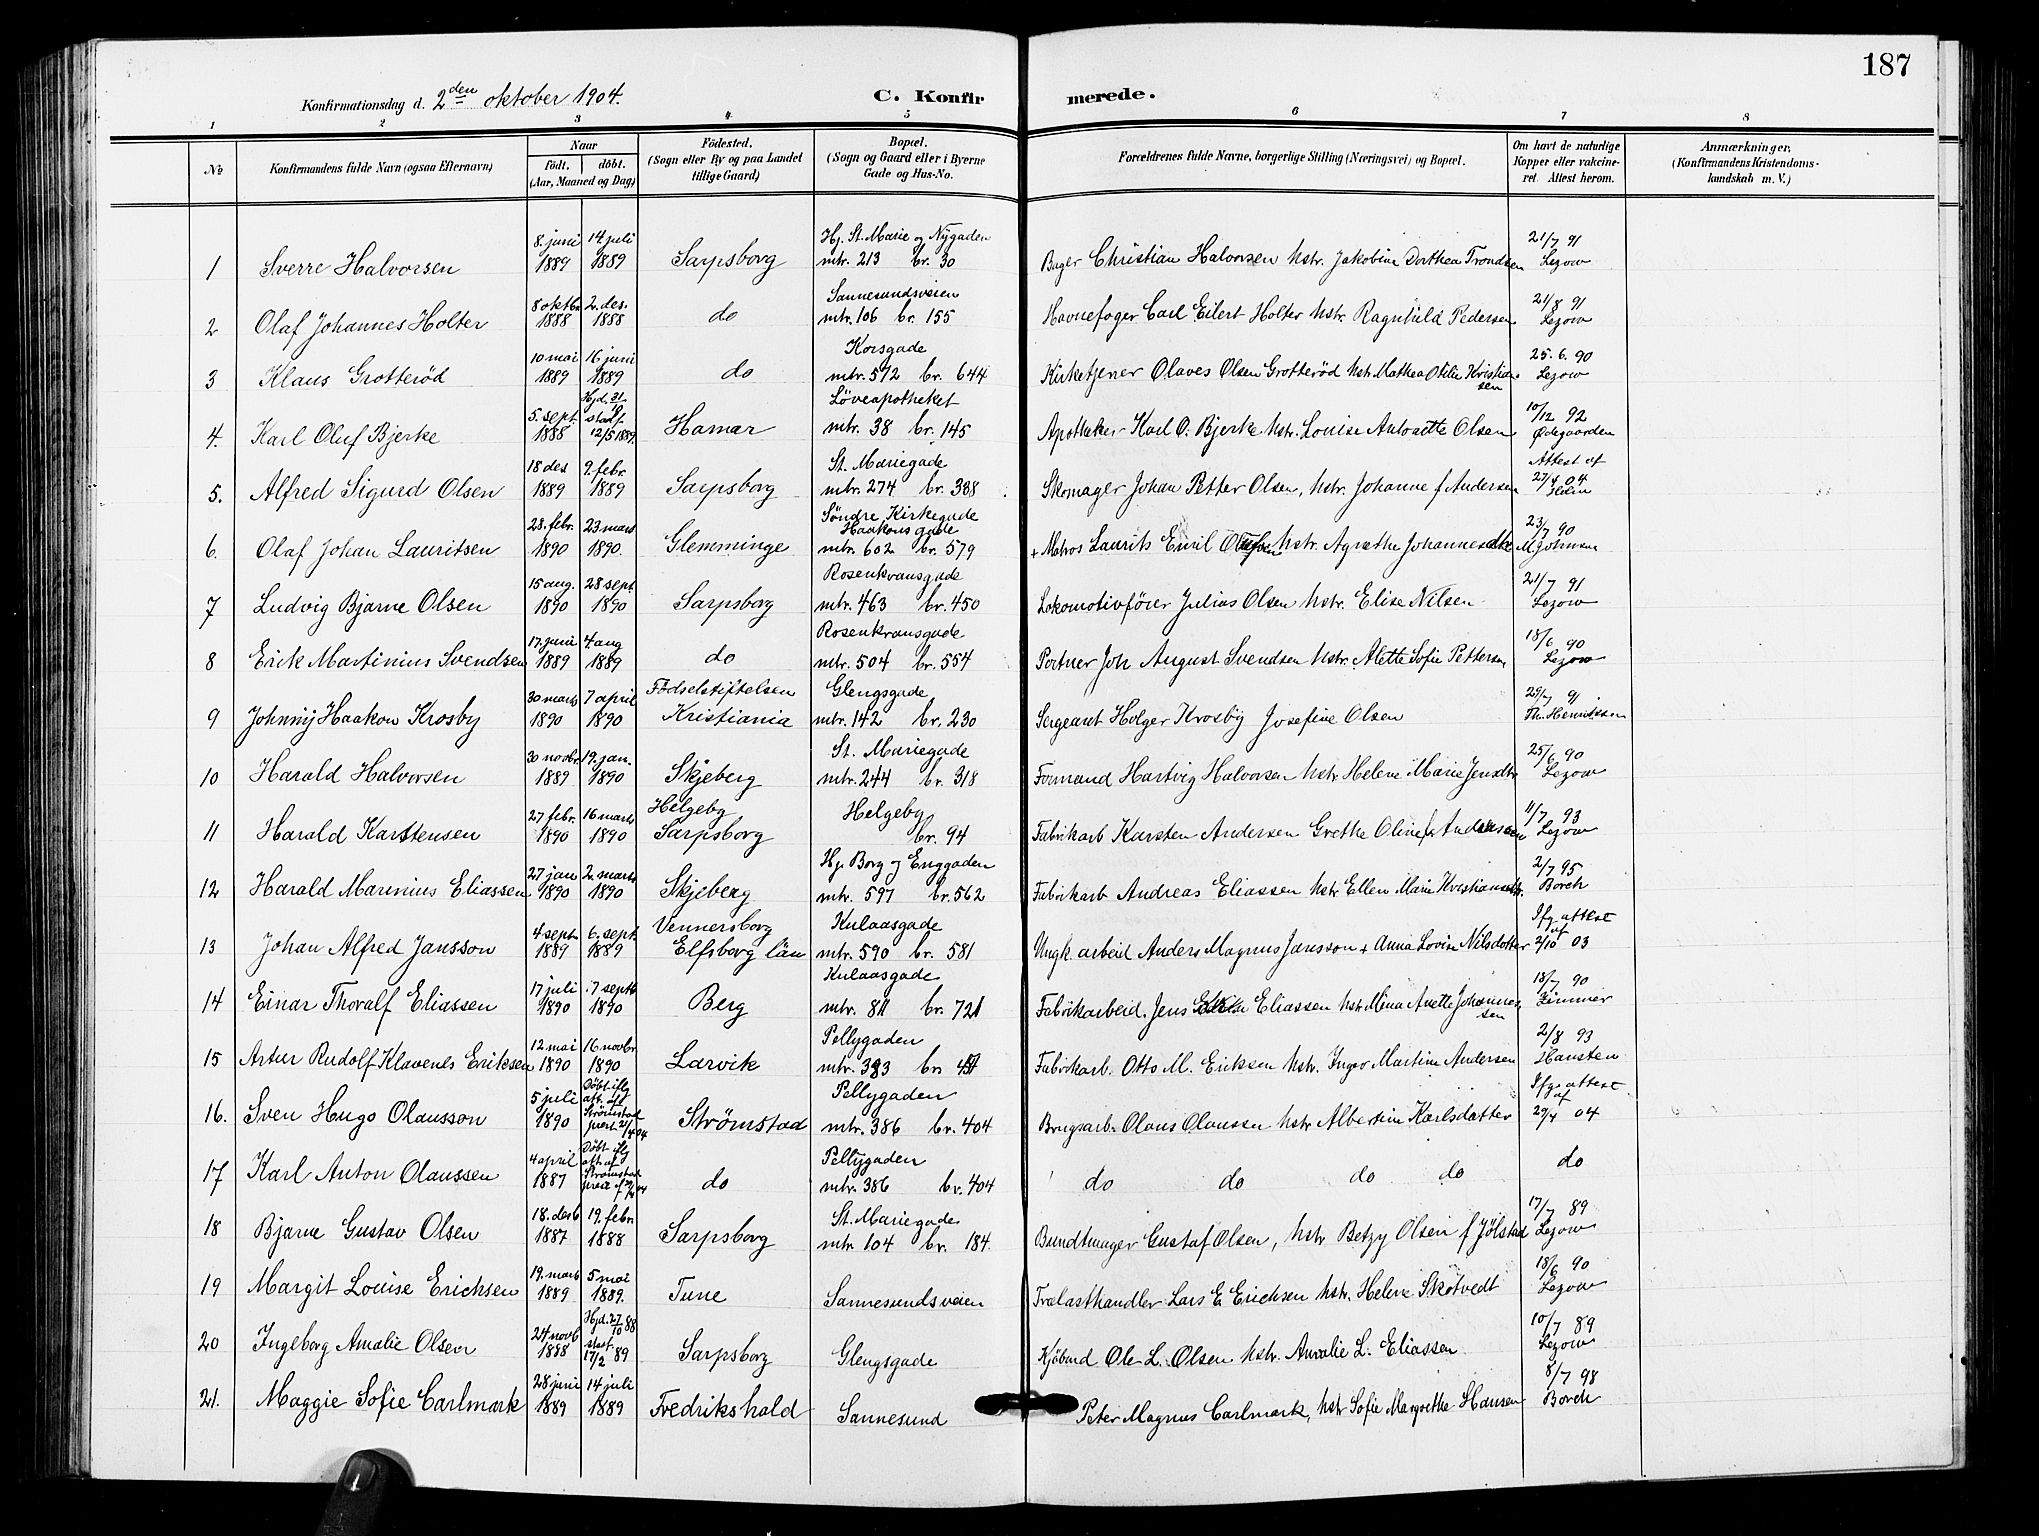 187
Konfirmationsdag d. 2den oktober 1904.
C. Konfirmerede.
1 2 3 4 5 6 7 8
No
Konfirmandens fulde Navn (ogsaa Efternavn)
Naar
født. døbt.
(Aar, Maaned og Dag)
Födested.
(Sogn eller By og paa Landet
tillige Gaard)
Bopæl.
(Sogn og Gaard eller i Byerne
Gade og Hus-No.
Forældrenes fulde Navne, borgerlige Stilling (Næringsvei) og Bopæl.
Om havt de naturlige
Kopper eller vakcineret. Attest herom.
Anmærkninger.
(Konfirmandens Kristendomskundskab m. V.)
8. juni 14. juli Hj. St. Marie og Nygaden 21/7 91
1 Sverre Halvorsen 1889 1889 Sarpsborg mtr. 213 br. 30 Bager Christian Halvorsen hstr. Jakobine Dorthea Trondsen Lezow
8 oktbr 2. des. Sannesundsveien 21/8 91
2 Olaf Johannes Holter 1888 1888 do mtr. 106 br. 155 Havnefoger Carl Eilert Holter hstr. Ragnhild Pedersen Lezow
10 mai 16 juni Korsgade 25. 6. 90
3 Klaus Grotterød 1889 1889 do mtr. 572 br. 644 Kirketjener Olaves Olsen Grotterød hstr. Mathea Otilie Kristiansen Lezow
5. sept. Hjd. stadf. Løveapotheket 10/12 92
4. Karl Oluf Bjerke 1888 12/5 1889. Hamar mtr. 38 br. 145 Apotheker Karl O. Bjerke hstr. Louise Antoette Olsen Ødegaarden
18 des 9. febr. St. Mariegade Attest af
5. Alfred Sigurd Olsen 1889 1889 Sarpsborg mtr. 274 br. 388 Skomager Johan Petter Olsen, hstr. Johanne f Andersen 27/4 04
28. febr. 23 mars Söndre Kirkegade Haakons gade 23/7 90
6. Olaf Johan Lauritsen 1890 1890. Glemminge mtr. 602 br. 579 + Matros Laurits Emil hstr. Agnethe
15 aug. 28 sept. Rosenkransgade 21/7 91
7 Ludvig Bjarne Olsen 1890 1890 Sarpsborg mtr. 463 br. 450 Lokomotivfører Julius Olsen hstr. Elise Nilsen Lezow
17. juni 4. aug Rosenkransgade 18/6 90
8 Erik Martinius Svendsen 1889 1889 do mtr. 504 br. 554 Portner Joh August Svendsen hstr. Alette Sofie Pettersen Lezow
30 marts 7 april Födselstiftelsen Glengsgade 29/7 91
9 Johnny Haakon Krosby 1890 1890 Kristiania mtr. 142 br. 230 Sergeant Holger Krosby Josefine Olsen Th. Henriksen
30 novbr. 19. jan. St. Mariegade 25/6 90
10 Harald Halvorsen 1889 1890 Skjeberg mtr. 244 br. 318 Formand Hartvig Halvorsen hstr Helene Marie Jensdtr Lezow
27 febr. 16 marts Helgeby Helgeby 11/7 93
11 Harald Karstensen 1890 1890 Sarpsborg br. 94 Fabrikarb Karsten Andersen Grethe Oline f. Andersen Lezow
27 jan 2. marts Hj. Borg og Enggaden 2/7 95
12 Harald Marinius Eliassen 1890 1890 Skjeberg mtr. 597 br. 562 Fabrikarb Andreas Eliassen hstr Ellen Marie Kristiansdtr. Borch
4 sept 6. sept. Vennersborg Kulaasgade Ifg. attest af
13 Johan Alfred Jansson 1889 1889 Elfsborg län mtr. 590 br. 581 Ungk. arbeid Anders Magnus Jansson + Anna Lovise Nilsdotter 2/10 03
17 juli 7 septb Kulaasgade 18/7 90
14 Einar Thoralf Eliassen 1890 1890 Berg mtr. 81 br. 721 Fabrikarbeid. Jens Eliassen hstr Mina Anette Johannessen Zimmer
12 mai 16 novbr. Pellygaden 2/8 93
15 Artur Rudolf Klavenes Eriksen 1890 1890 Larvik mtr. 383 br Fabrikarb. Otto M. Eriksen hstr. Inger Martine Andersen Hansten
5 juli Døbt iflg att. af Strömstad prest 21/4 04 Pellygaden Ifg attest af
16. Sven Hugo Olausson 1890 Strömstad mtr. 386 br. 404 Brugsarb. Olaus Olaussen hstr Albertine Karlsdatter 29/4 04
4 april Døbt iflg att. af Strömstad prest Pellygaden do
17 Karl Anton Olaussen 1887 do mtr. 386 br. 404 do do do do
18. desb 19. febr. St. Mariegade 17/7 89
18 Bjarne Gustav Olsen 1887 1888 Sarpsborg mtr. 104 br. 184. Bundtmager Gustaf Olsen, hstr Betzy Olsen f Jølstad Lezow
19. marts 5 mai 18/6 90
19 Margit Louise Erichsen 1889 1889. Tune Sannesundsveien Trælasthandler Lars E Erichsen hstr. Helene Skotvedt Lezow
24 novb Hjd. 27/10 88 10/7 89
20 Ingeborg Amalie Olsen 1888 stadf. 17/2 89 Sarpsborg Glengsgade Kjöbmd Ole L. Olsen hstr. Amalie L. Eliassen Lezow
28 juni 14 juli 8/7 98
21. Maggie Sofie Carlmark 1889 1889 Fredrikshald Sannesund Peter Magnus Carlmark, hstr Sofie Margrethe Hansen Borch